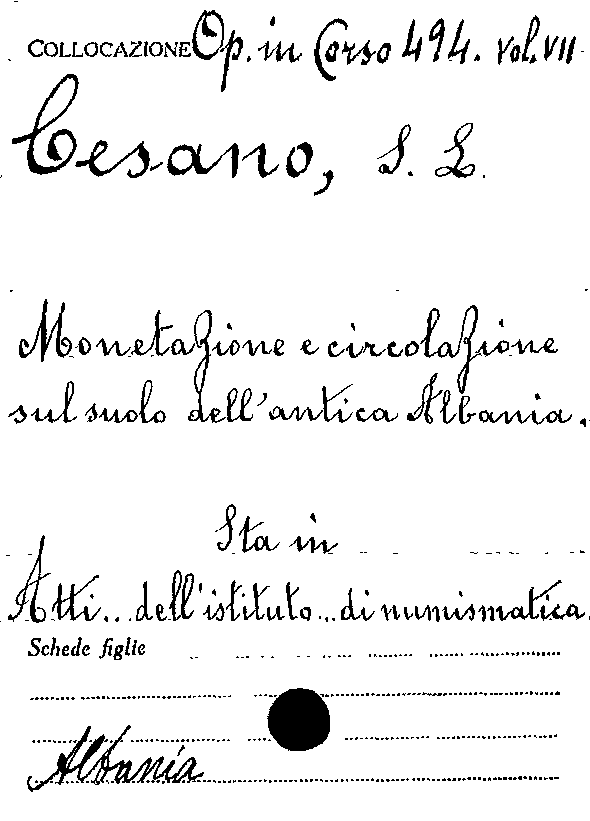 COLLOCAZIONE Op. in Corso 494. Vol. VII
Cesano, S. L.
Monetazione e circolazione
sul suolo dell'antica Albania.
Sta in
Atti.. dell'istituto... di numismatica
Schede figlie
Albania